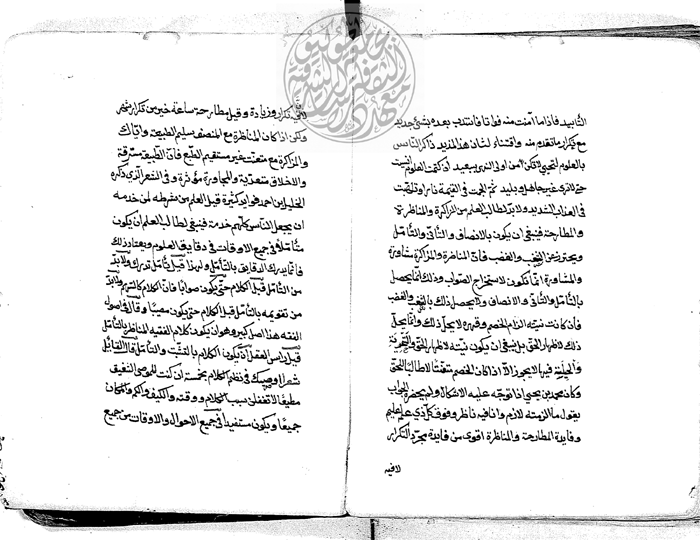 مع تكرار ما تقدم منه واقتناء لشأن هذا المزيد ذاكر الناس
بالعلوم لتحيى لا تكن من اولي النهى ببعيد اذ كتمت العلوم انسيت
حتى لا ترى غير جاهل وبليد ثم الجمت في القيمة نارا وتلهبت
في العذاب الشديد ولا بد لطالب العلم من المذاكرة والمناظرة
والمطارحة فينبغي ان يكون بالانصاف والتأني والتأمل
ويحترز عن الشغب والغضب فان المناظرة والمذاكرة مشاورة
والمشاورة انما تكون لاستخراج الصواب وذلك انما يحصل
بالتأمل والتأني والانصاف ولا يحصل ذلك بالشغب والغضب
فان كانت نيته الزام الخصم وقهره لا يحل ذلك وانما يحل
ذلك لاظهار الحق بل ينبغي ان يكون نيته لاظهار الحق والتمويه
والحيلة فيها لا يجوز الا اذا كان الخصم متعنتا لا طالبا للحق
وكان محمد بن يحيى اذا توجه عليه الاشكال ولم يحضره الجواب
يقول ما الزمته لازم وانا فيه ناظر وفوق كل ذي علم عليم
وفايدة المطارحة والمناظرة اقوى من فايدة مجرد التكرار
لا فيه
لا فيه تكرار وزيادة وقيل مطارحة ساعة خير من تكرار شهر
ولكن اذا كان المناظرة مع المنصف سليم الطبيعة واياك
والمذاكرة مع متعنت غير مستقيم الطبع فان الطبيعة مسترقة
والاخلاق متعدية والمجاورة مؤثرة وفي الشعر الذي ذكره
الخليل بن احمد فوايد كثيرة قيل العلم من شرطه لمن خدمه
ان يجعل الناس كلهم خدمه فينبغي لطالب العلم ان يكون
متأملا في جميع الاوقات في دقايق العلوم ويعتاد ذلك
فانما يدرك الدقايق بالتأمل ولهذا قيل تأمل تدرك ولا بد
من التأمل قبل الكلام حتى يكون صوابا فان الكلام كالسهم ولا بد
من تقويمه بالتأمل قبل الكلام حتى يكون مصيبا وقال في اصول
الفقه هذا اصل كبير وهو ان يكون كلام الفقيه المناظر بالتأمل
قيل رأس العقل ان يكون الكلام بالتثبت والتأمل قال القائل
شعر اوصيك في نظم الكلام بخمسة ان كنت للموصي الشفيق
مطيعا لا تغفلن سبب الكلام ووقته والكيف والكم والمكان
جميعا ويكون مستفيدا في جميع الاحوال والاوقات من جميع